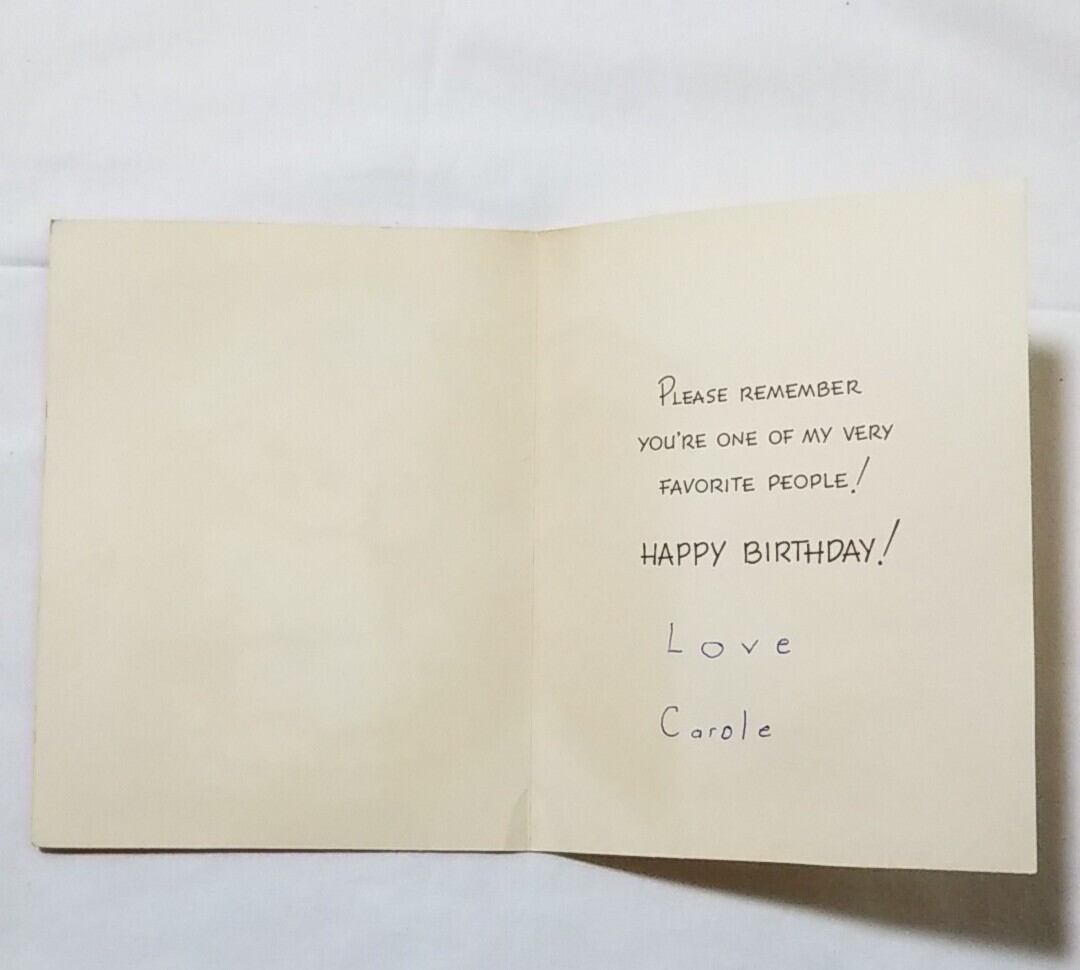 PLEASE REMEMBER
YOU'RE ONE OF MY VERY
FAVORITE PEOPLE!
HAPPY BIRTHDAY!
Love
Carole